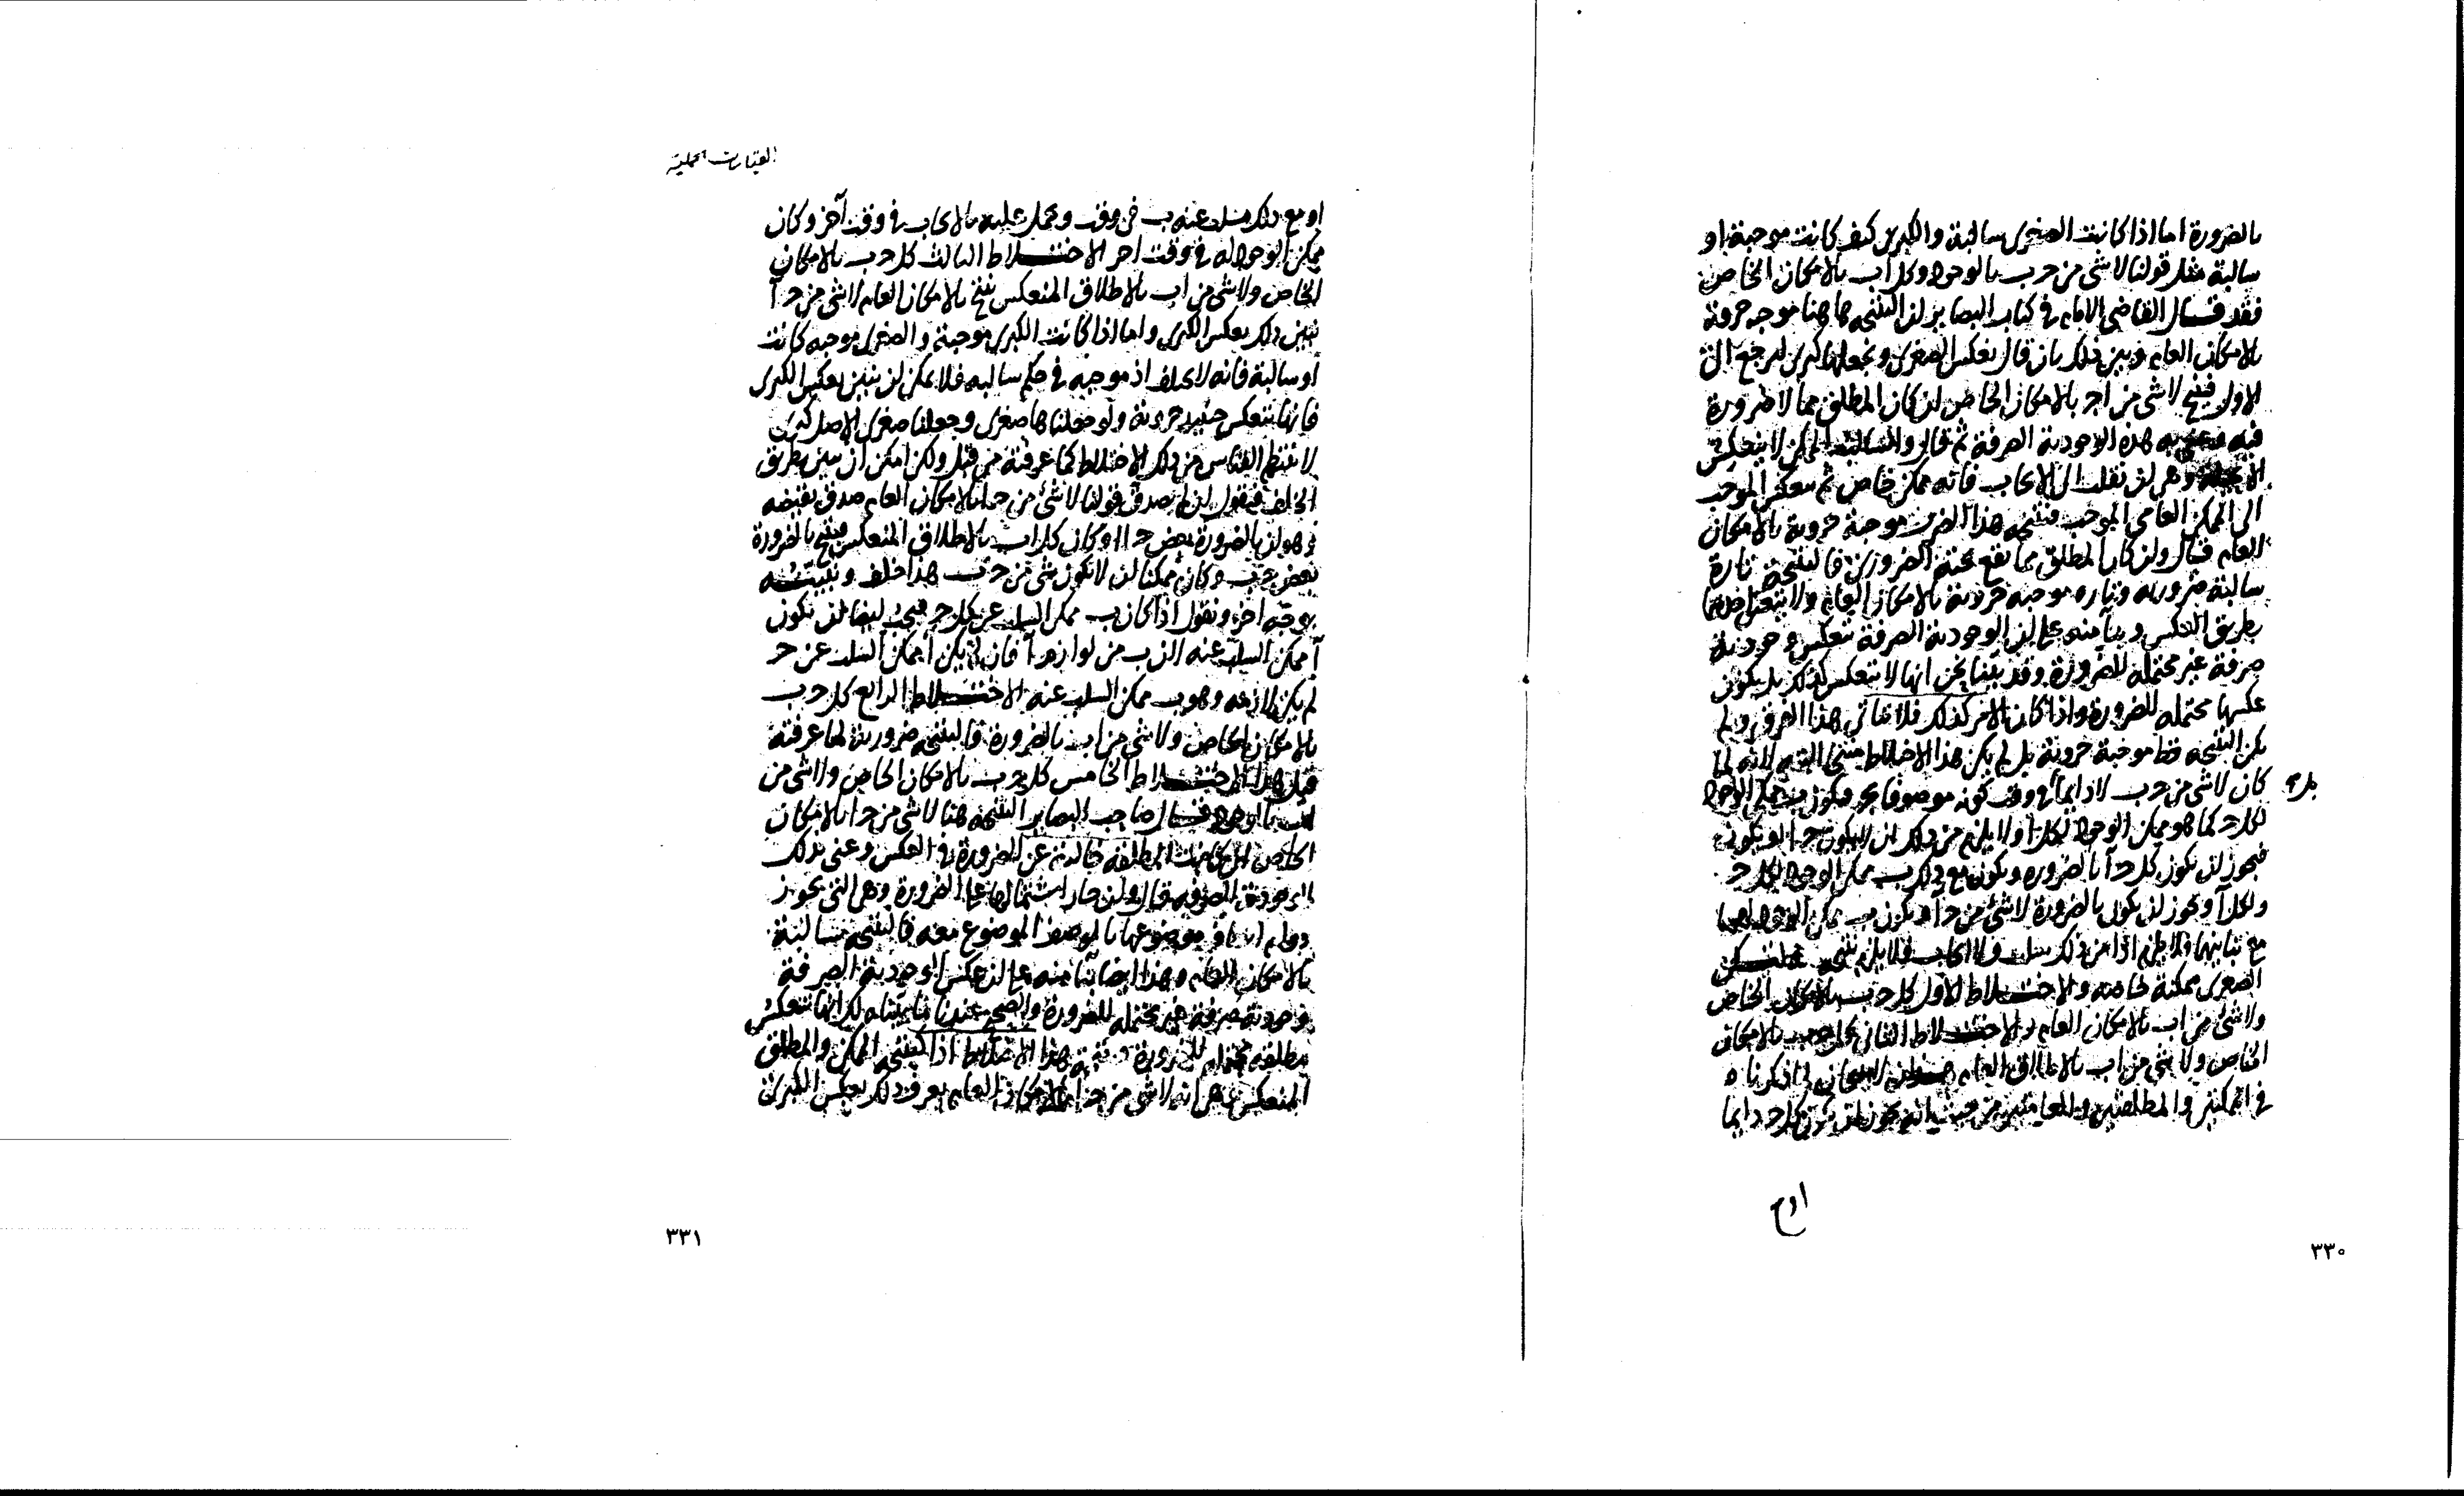 بالضرورة اما اذا كانت الصغرى سالبة والكبرى كيف كانت موجبة او
سالبة مثل قولنا لا شى من حب بالوجود وكل اب بالامكان الخاص
فقد قال القاضى الامام فى كتاب البصاير ان النتيجه هاهنا موجبه جزوية
بالامكان العام وبين ذلك بان قال نعكس الصغرى ونجعلها كبرى ليرجع الى
الاول فينتج لا شى من اج بالامكان الخاص لان كان المطلق مما لا ضرورة
فيه هذه الوجودية الصرفة ثم قال والسالبة لا ينعكس
نقلت الى الايجاب فانه ممكن خاص ثم نعكس الموجب
الى الممكن العامى الموجب فنتيجه هذا الضرب موجبة جزوية بالامكان
العام قال ولن كان المطلق مما يقع تحته الضرورى فالنتيجة تارة
سالبة ضروريه وتاره موجبه جزوية بالامكان العام ولا
بطريق العكس منه على ان الوجودية الصرفة تنعكس وجودية
صرفة غير محتمله للضرورة وقد بيّنا نحن انها لا تنعكس كذلك بل يكون
عكسها محتمله للضرورة واذا كان الامر كذلك فلا هذا الفرق ولم
يكن النتيجه قط موجبة جزوية بل لم يكن هذا الاختلاط منتجا البته لانه لما
كان لا شى من حب لا دايما فى وقت كونه موصوفا بج فيكون ب ممكن الوجود
لكل ج كما هو ممكن الوجود لكل ا ولا يلزم من ذلك ان لا يكون ج ا او يكون
فيجوز ان يكون كل ج ا بالضروره ويكون مع ذلك ب ممكن الوجود لكل ج
ولكل ا ويجوز ان يكون بالضرورة لا شى من ج ا ويكون ب ممكن الوجود لهما
مع تباينهما ولا يلزم اذا من ذلك سلب ولا ايجاب فلا يلزم نتيجه ولتكن
الصغرى ممكنة خاصة والاختلاط الاول كل حب بالامكان الخاص
ولا شى من اب بالامكان العام والاختلاط الثانى كل حب بالامكان
الخاص ولا شى من اب بالاطلاق العام لما ذكرناه
فى الممكنين والمطلقين والعامتين من حيث انه يجوز ان يكون كل ج دايما
او ج
٣٣٠
القياسات الحملية
او مع ذلك سلب عنه ب فى وقت وحمل عليه بالايجاب فى وقت آخر وكان
ممكن الوجود له فى وقت اخر الاختلاط الثالث كل حب بالامكان
الخاص ولا شى من اب بالاطلاق المنعكس ينتج بالامكان العام لا شى من ج ا
نبين ذلك بعكس الكبرى واما اذا كانت الكبرى موجبة والصغرى موجبه كانت
او سالبة فانه لا يختلف اذ موجبه فى حكم سالبه فلا يمكن ان نبين بعكس الكبرى
فانها تنعكس حينيذ جزوية ولو جعلناها صغرى وجعلنا صغرى الاصل كبرى
لا ينتظم القياس من ذلك الاختلاط كما عرفته من قبل ولكن امكن ان نبين بطريق
الخلف فنقول ان لم يصدق قولنا لا شى من ج ا بالامكان العام صدق نقيضه
وهو ان بالضرورة بعض ج ا وكان كل اب بالاطلاق المنعكس فينتج بالضرورة
بعض حب وكان ممكنا ان لا يكون شى من حب هذا خلف ونبينه
بوجه اخر ونقول اذا كان ب ممكن السلب عن كل ج فيجب ايضا ان يكون
آ ممكن السلب عنه لان ب من لوازم آ فان لم يكن ا ممكن السلب عن ج
لم يكن لازمه وهو ب ممكن السلب عنه الاختلاط الرابع كل حب
بالامكان الخاص ولا شى من اب بالضرورة فالنتيجه ضرورية لما عرفته
قبل هذا الاختلاط الخامس كل حب بالامكان الخاص ولا شى من
اب بالوجود قال صاحب البصاير النتيجه هنا لا شى من ج ا بالامكان
الخاص ان كانت المطلقه خالية عن الضرورة فى العكس وعنى بذلك
الوجودية الصرفه قال ولن جاز اشتمالها على الضرورة وهى التى يجوز
دوام اتصاف موضوعها بالوصف الموضوع معه فالنتيجه سالبة
بالامكان العام وهذا ايضا بنا منه على ان عكس الوجودية الصرفة
وجودية صرفة غير محتمله للضرورة والصحيح عندنا ما بيّناه ان انها تنعكس
مطلقه محتمله للضرورة هذا الاختلاط اذا كنتيجه الممكن والمطلق
المنعكس وهى انه لا شى من ج ا بالامكان العام يعرف ذلك بعكس الكبرى
٣٣١